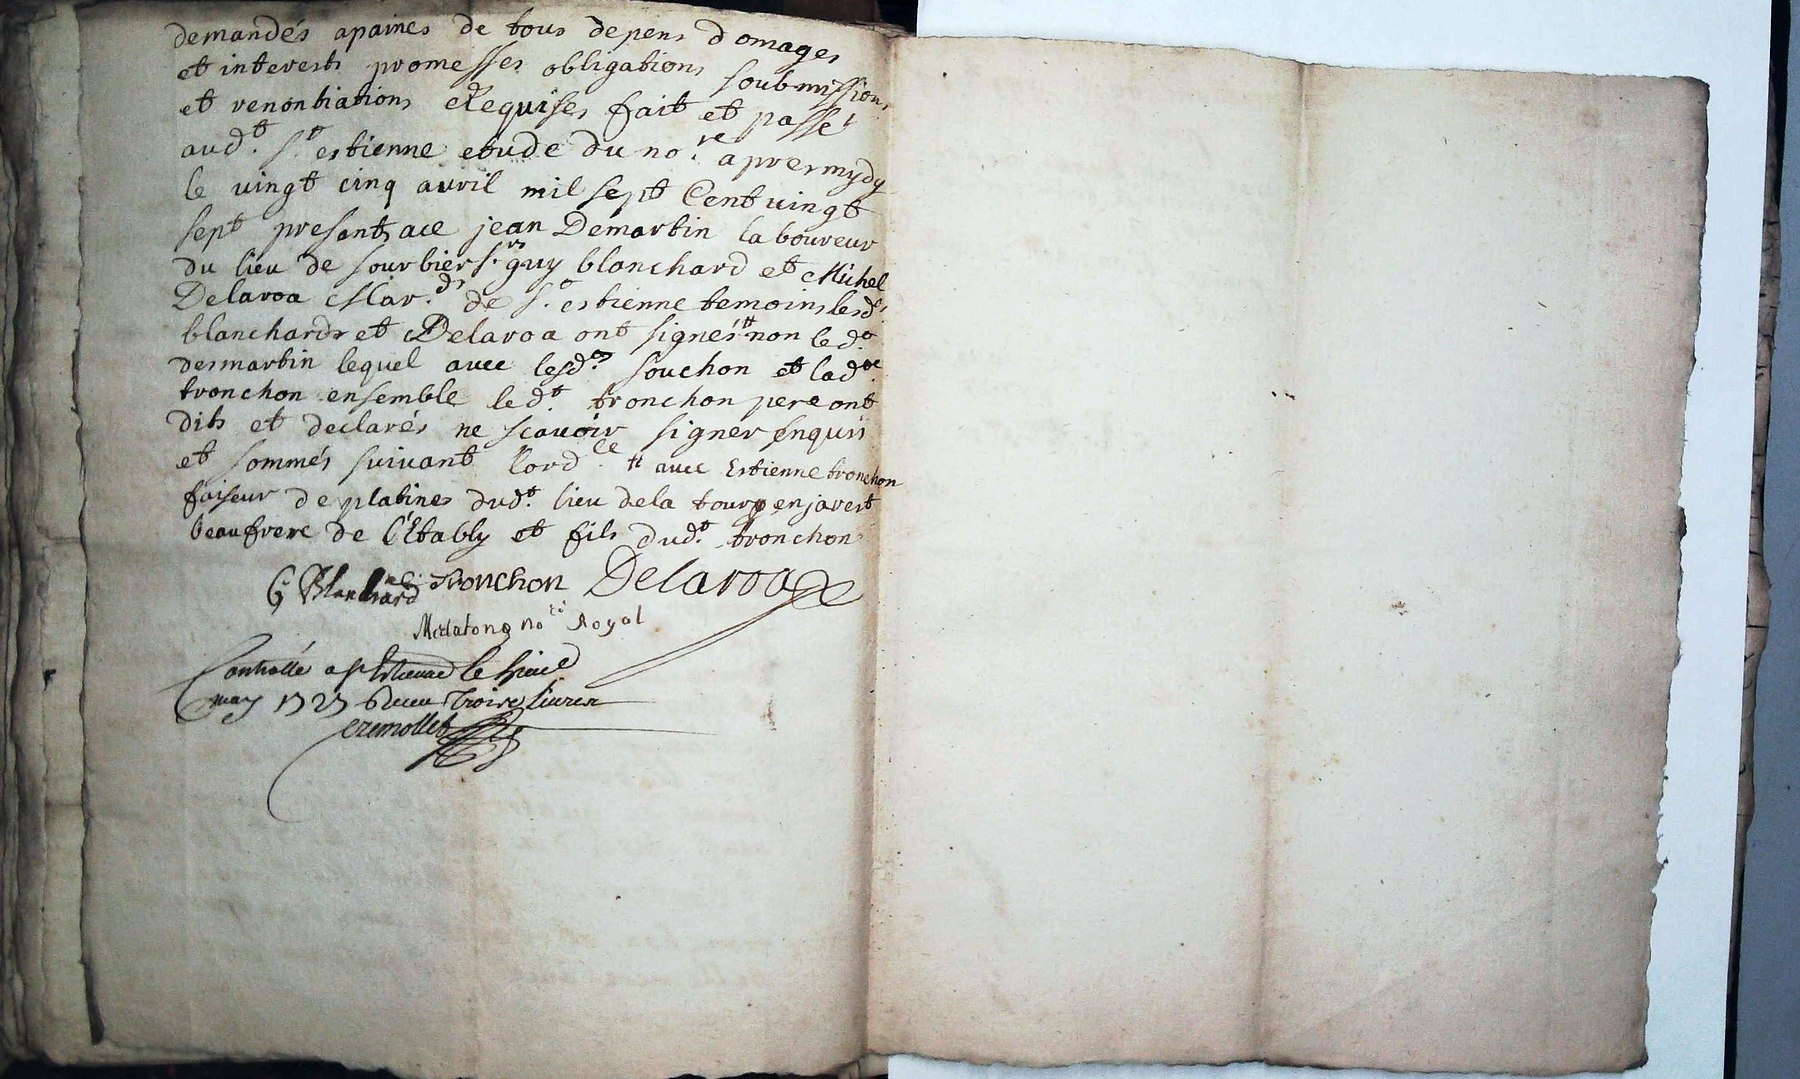 demandés apaines de tous depens domages
et interests promesses obligations soubmissions
et renontiations Requises fait et passé
aud.t S.t estienne etude du no.re apres mydy
le vingt cinq avril mil sept Cent vingt
sept presents ace jean Demartin laboureur
du lieu de sourbier s.rs guy blanchard et Michel
Delaroa Mar.ds de S.t estienne temoins lesd.
blanchard et Delaroa ont signés # non led.t
desmartin lequel avec lesd.s souchon et lad.te
tronchon ensemble led.t tronchon pere ont
dits et declarés ne scavoir signer enquis
et sommés suivant lord.ce # avec Estienne tronchon
faiseur de platines dud.t lieu dela tour en jarest
beaufrere de l'Etably et fils dud.t tronchon
G Blanchard e: Tronchon Delaroa
no.re Royal
Controllé a st Etienne le
may 1727 Receu Trois livres